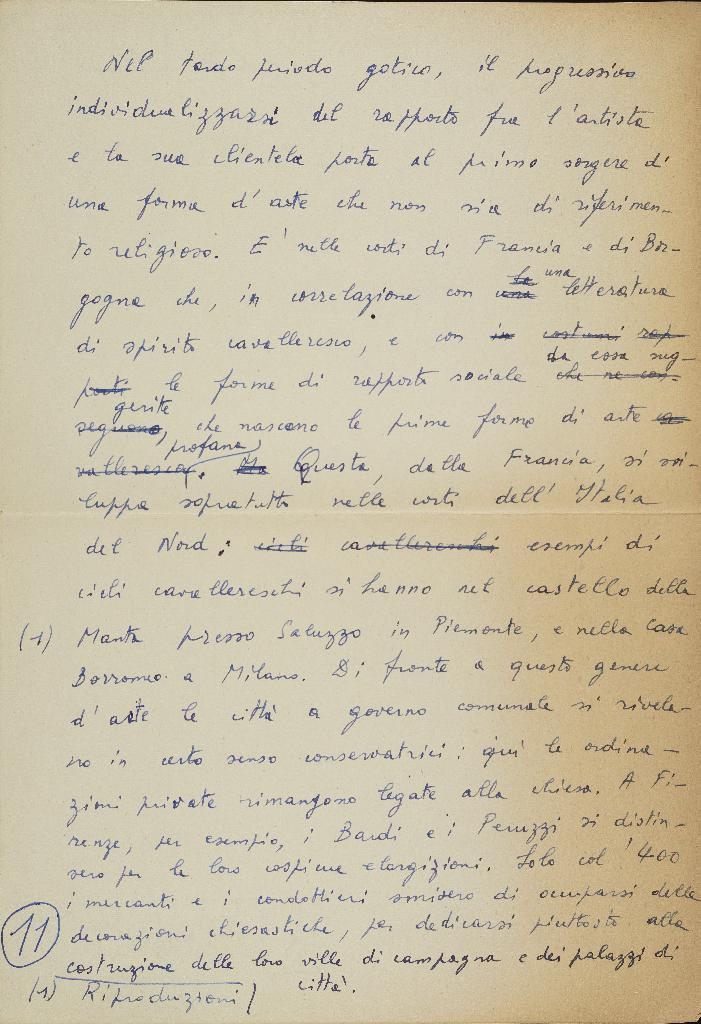 Nel tardo periodo gotico, il progressivo
individualizzarsi del rapporto fra l'artista
e la sua clientela porta al primo sorgere di
una forma d'arte che non sia di riferimen-
to religioso. E' nelle corti di Francia e di Bor-
gogna che, in correlazione con una la una letteratura
di spirito cavalleresco, e con in costumi rap-
porti le forme di rapporto sociale che ne con- da essa sug-
seguono, gerite, che nascono le prime forme di arte ca-
valleresca. profana Ma Questa, dalla Francia, si svi-
luppa sopratutto nelle corti dell'Italia
del Nord; cicli cavallereschi esempi di
cicli cavallereschi si hanno nel castello della
(1) Manta presso Saluzzo in Piemonte, e nella casa
Borromeo a Milano. Di fronte a questo genere
d'arte le città a governo comunale si rivela-
no in certo senso conservatrici: qui le ordina-
zioni private rimangono legate alla chiesa. A Fi-
renze, per esempio, i Bardi e i Peruzzi si distin-
sero per le loro cospicue elargizioni. Solo col '400
i mercanti e i condottieri smisero di occuparsi delle
decorazioni chiesastiche, per dedicarsi piuttosto alla
11
costruzione delle loro ville di campagna e dei palazzi di
città.
(1) Riproduzioni